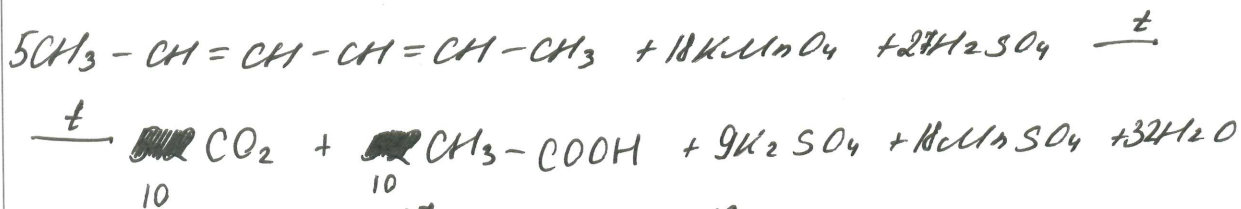 5CH₃ – CH = CH – CH = CH – CH₃ + 18KMnO₄ + 27H₂SO₄ —t—
—t— CO₂ + CH₃ – COOH + 9K₂SO₄ + 18MnSO₄ + 32H₂O
10 10